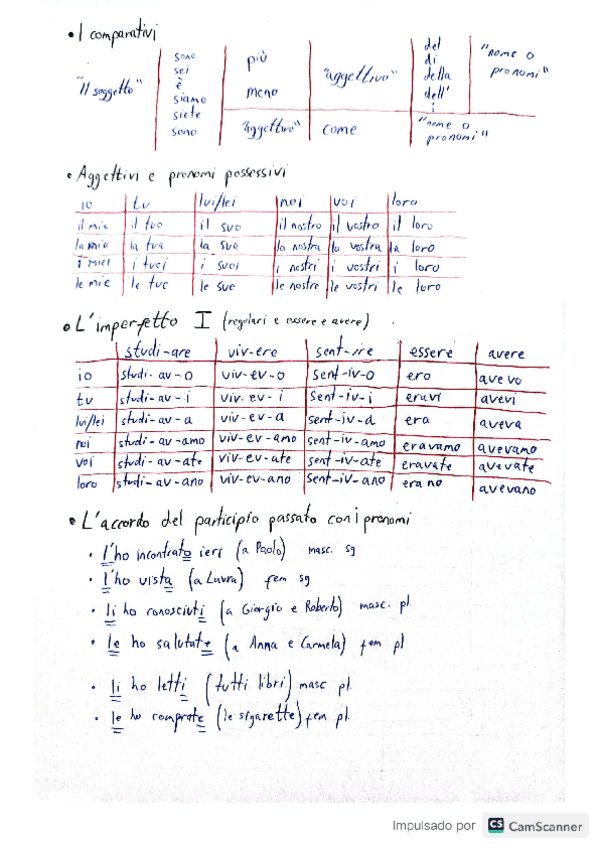 • I comparativi
"Il soggetto" sono sei è siamo siete sono più meno "aggettivo" del di della dell' "nome o pronomi"
"aggettivo" come "nome o pronomi"
• Aggettivi e pronomi possessivi
io tu lui/lei noi voi loro
il mio il tuo il suo il nostro il vostro il loro
la mia la tua la sua la nostra la vostra la loro
i miei i tuoi i suoi i nostri i vostri i loro
le mie le tue le sue le nostre le vostre le loro
• L'imperfetto I (regolari e essere e avere)
studi-are viv-ere sent-ire essere avere
io studi-av-o viv-ev-o sent-iv-o ero avevo
tu studi-av-i viv-ev-i sent-iv-i eravi avevi
lui/lei studi-av-a viv-ev-a sent-iv-a era aveva
noi studi-av-amo viv-ev-amo sent-iv-amo eravamo avevamo
voi studi-av-ate viv-ev-ate sent-iv-ate eravate avevate
loro studi-av-ano viv-ev-ano sent-iv-ano erano avevano
• L'accordo del participio passato con i pronomi
• l'ho incontrato ieri (a Paolo) masc. sg
• l'ho vista (a Laura) fem sg
• li ho conosciuti (a Giorgio e Roberto) masc. pl
• le ho salutate (a Anna e Carmela) fem pl
• li ho letti (tutti libri) masc pl.
• le ho comprate (le sigarette) fem pl.
Impulsado por CS CamScanner